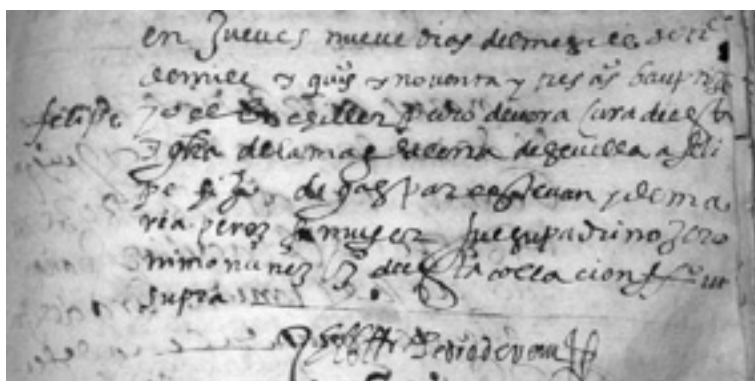 en Jueves nueve dias del mes de
de mill y quis y noventa y tres as baup
felipe yo el Bachiller Pedro de vora cura de esta
Iglia de la magdalena de sevilla a feli
pe hijo de gaspar estevan y de ma
ria perez su muger fue su padrino Jero
nimo nuñez de collacion ut
supra
Pedro de vora